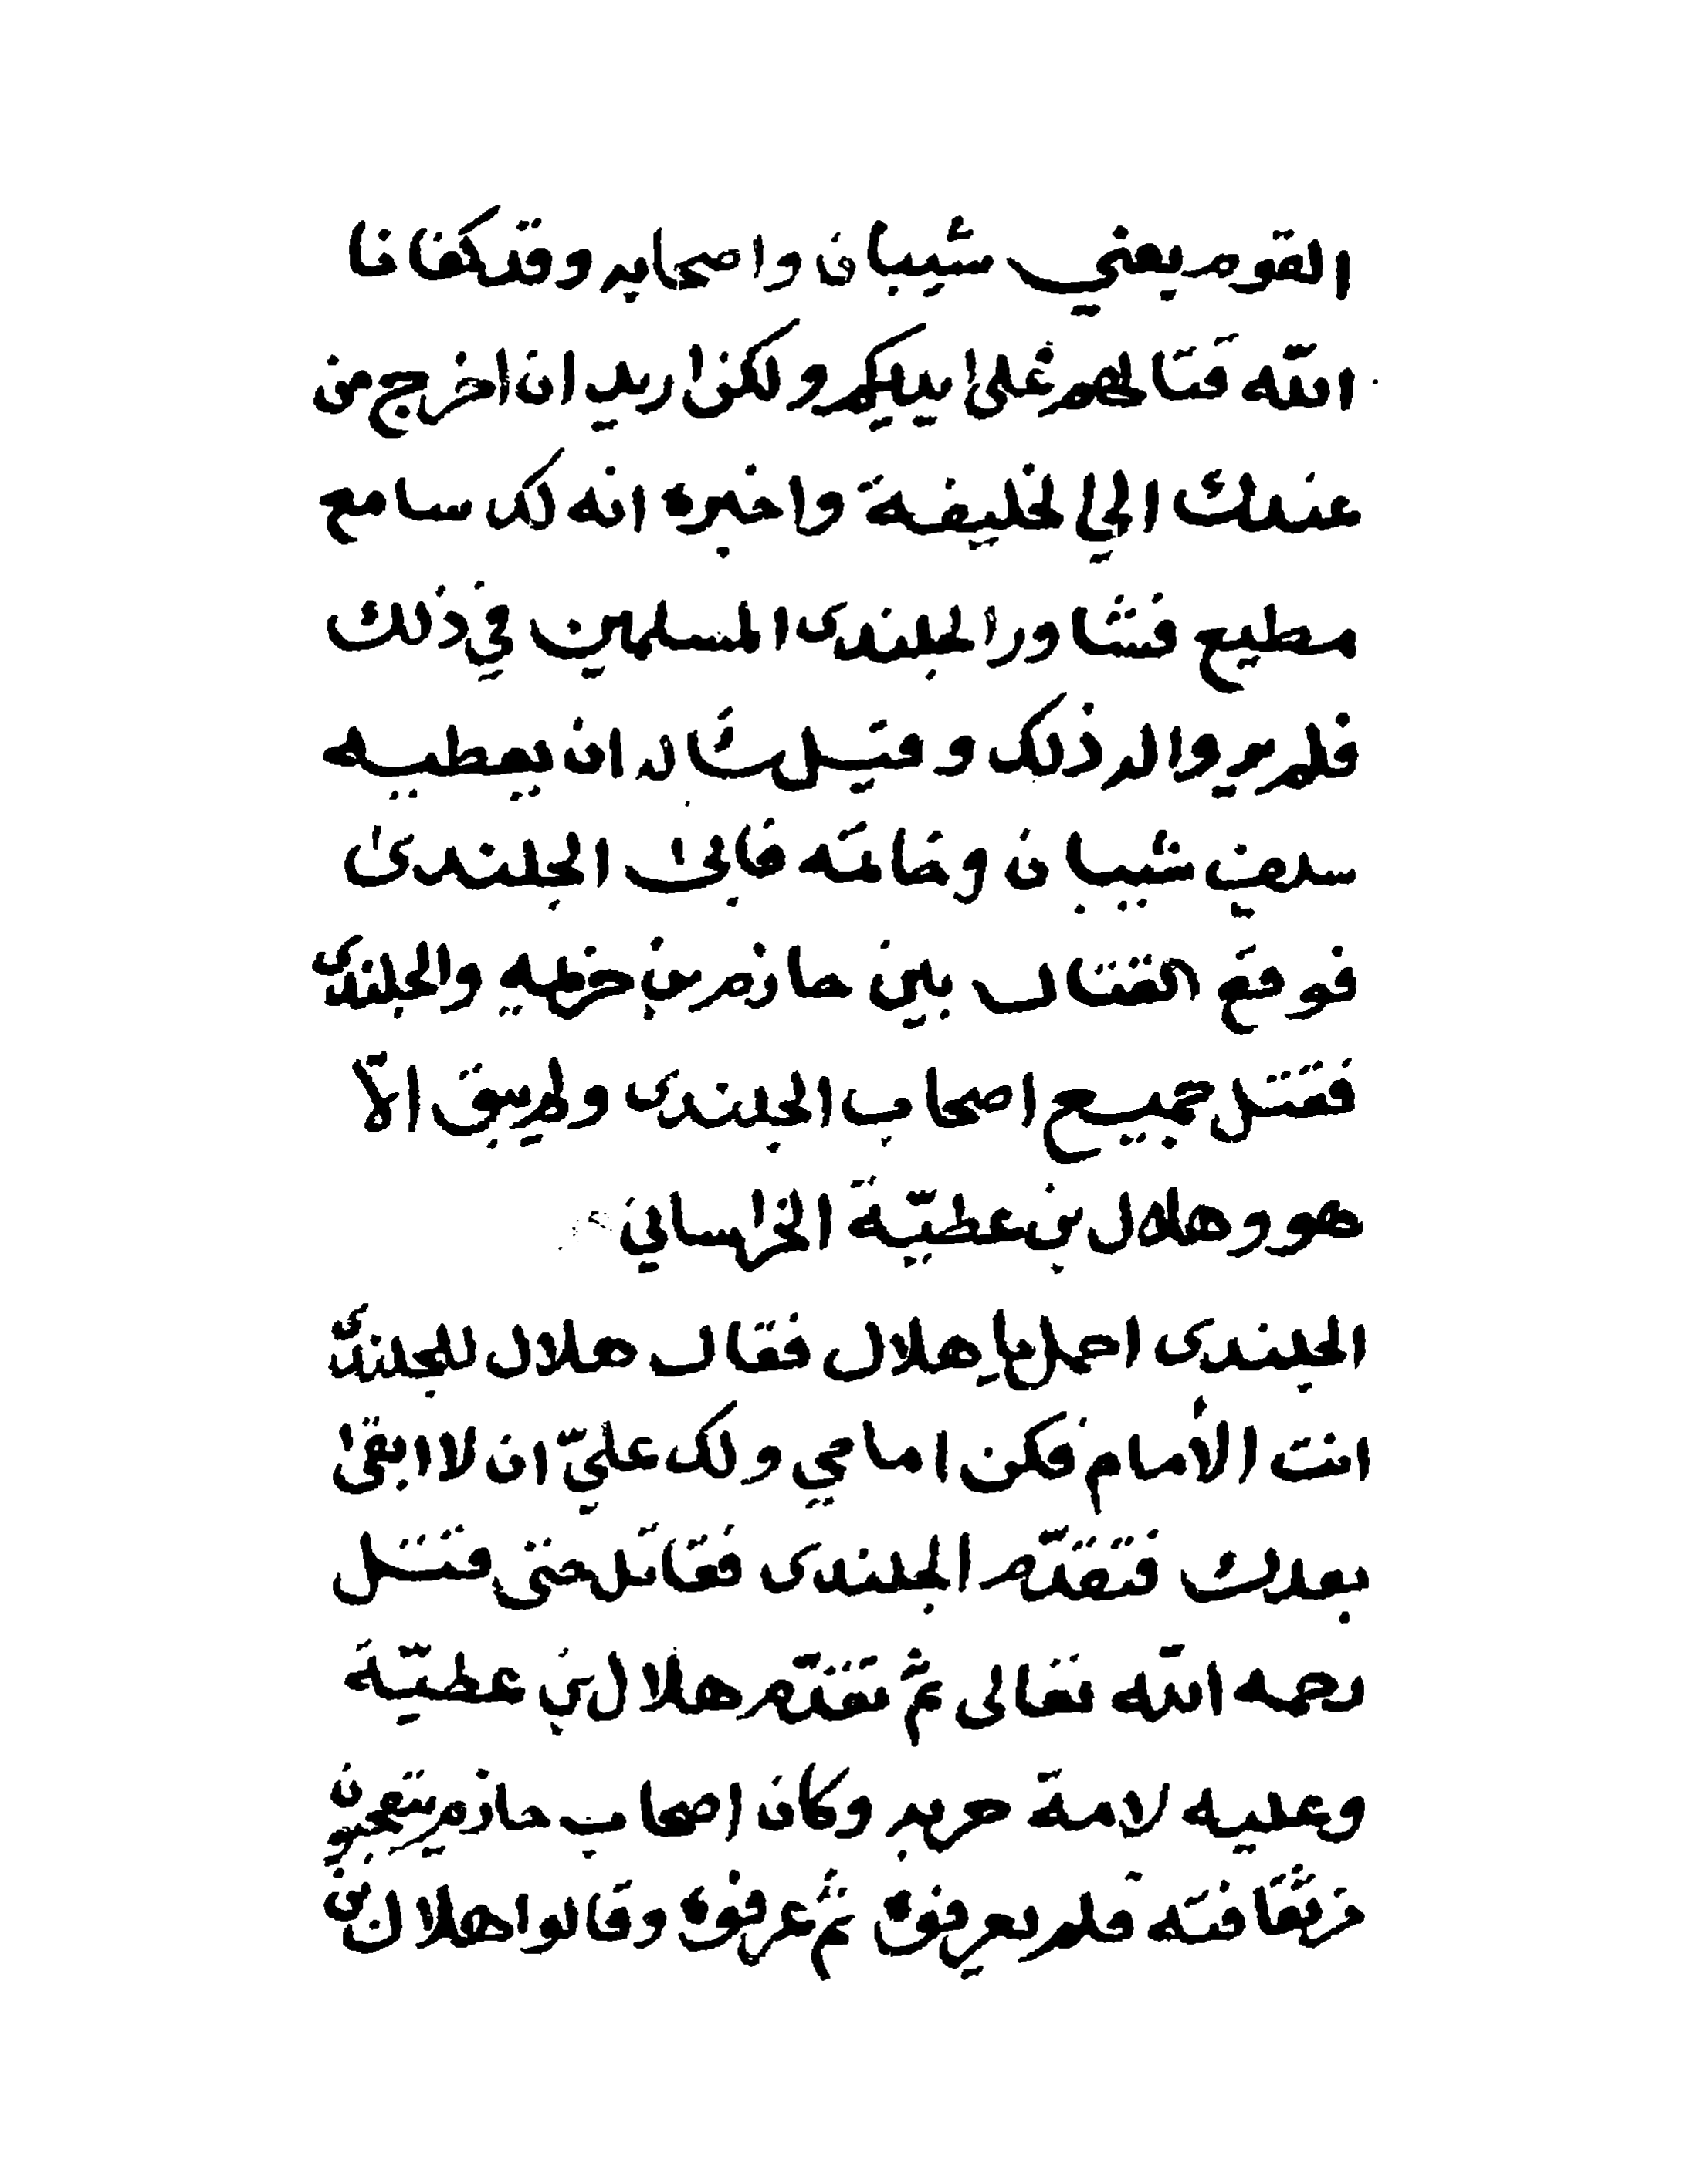 القوم يعني شيبان واصحابه وقد كفانا
الله قتالهم على ايديكم ولكن اريد ان اخرج من
عندك الى الخليفة واخبره انه لك سامع
مطيع فشاور الجلندى المسلمين في ذلك
فلم يروا له ذلك وقيل سأله ان يعطيه
سيف شيبان وخاتمه فابى الجلندى
فوقع القتال بين خازم بن خزيمة والجلندى
فقتل جميع اصحاب الجلندى ولم يبق الّا
هو وهلال بن عطيّة الخراساني
الجلندى احمل يا هلال فقال هلال للجلندى
انت الأمام فكن امامي ولك عليّ ان لا ابقى
بعدك فتقدّم الجلندى فقاتل حتى قتل
رحمه الله تعالى ثم تقدّم هلال بن عطيّة
وعليه لامة حربه وكان اصحاب خازم يتعجبون
من ثقافته فلم يعرفوه ثم عرفوه وقالوا هلال بن